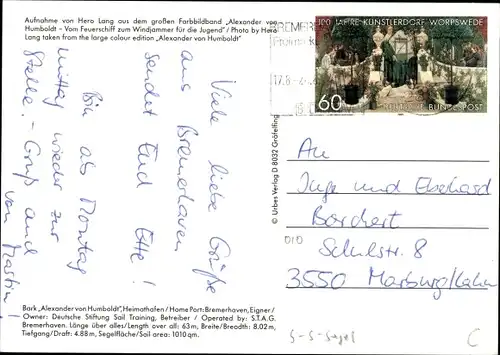 Aufnahme von Hero Lang aus dem großen Farbbildband „Alexander von
Humboldt - Vom Feuerschiff zum Windjammer für die Jugend"/Photo by Hero
Lang taken from the large colour edition „Alexander von Humboldt"
Viele liebe Grüße
aus Bremerhaven
sendet Euch Ette!
Bin ab Montag
mittag wieder zur
Stelle. - Gruß auch
von Martin!
Bark „Alexander von Humboldt", Heimathafen / Home Port: Bremerhaven, Eigner /
Owner: Deutsche Stiftung Sail Training, Betreiber / Operated by: S.T.A.G.
Bremerhaven. Länge über alles/Length over all: 63 m, Breite/Breadth: 8.02 m,
Tiefgang/Draft: 4.88 m, Segelfläche/Sail area: 1010 qm.
© Urbes Verlag D 8032 Gräfelfing
BREMERH
17.8
100 JAHRE KÜNSTLERDORF WORPSWEDE
60
DEUTSCHE BUNDESPOST
An
Inge und Eberhard
Borchert
Schulstr. 8
3550 Marburg/Lahn
S-S-Segel
C